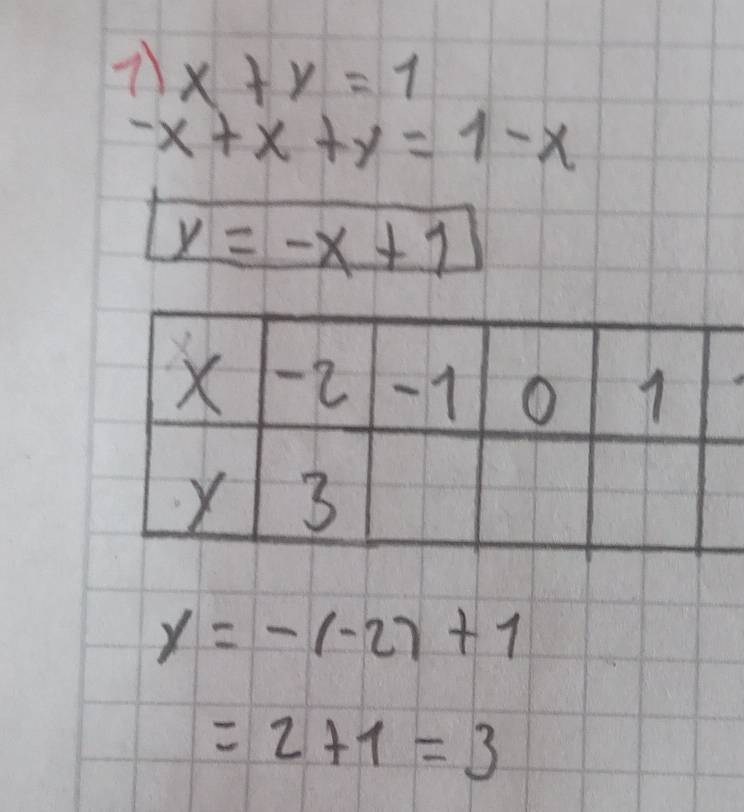 1) x + y = 1
-x + x + y = 1 - x
y = -x + 1
x -2 -1 0 1
y 3
y = -(-2) + 1
= 2 + 1 = 3